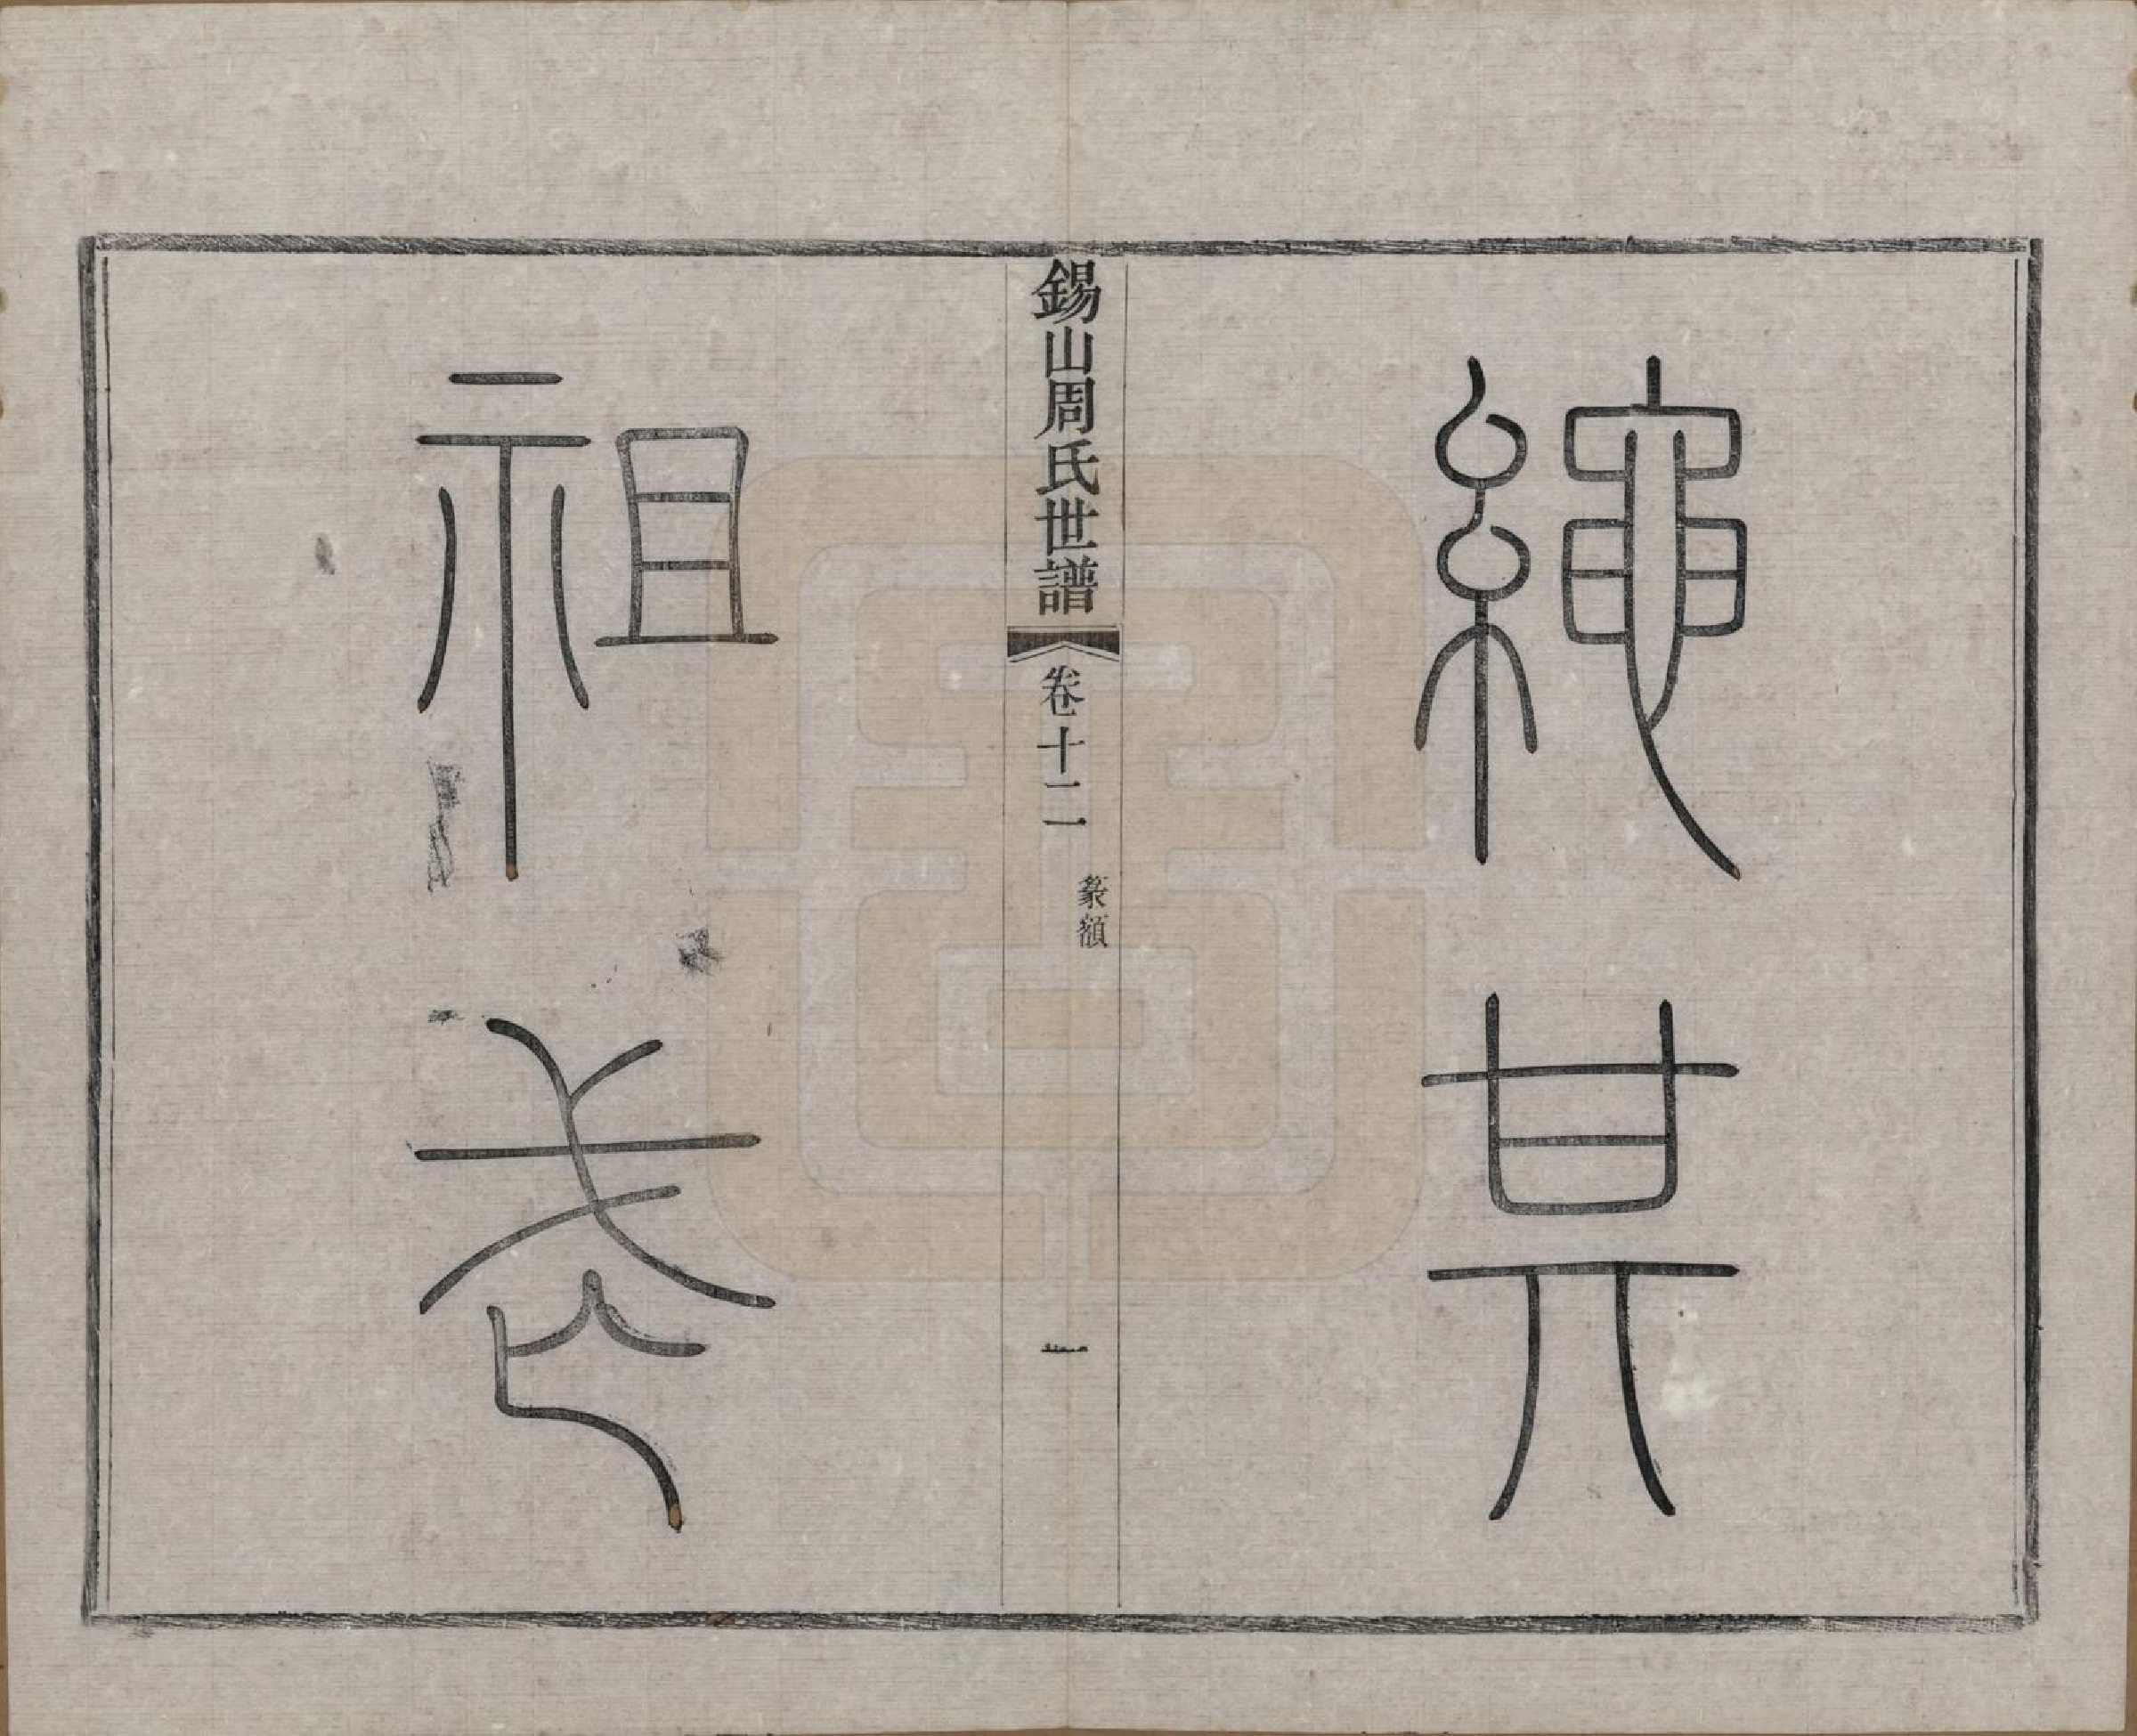 繩其
錫山周氏世譜
卷十二
篆額
一
祖武